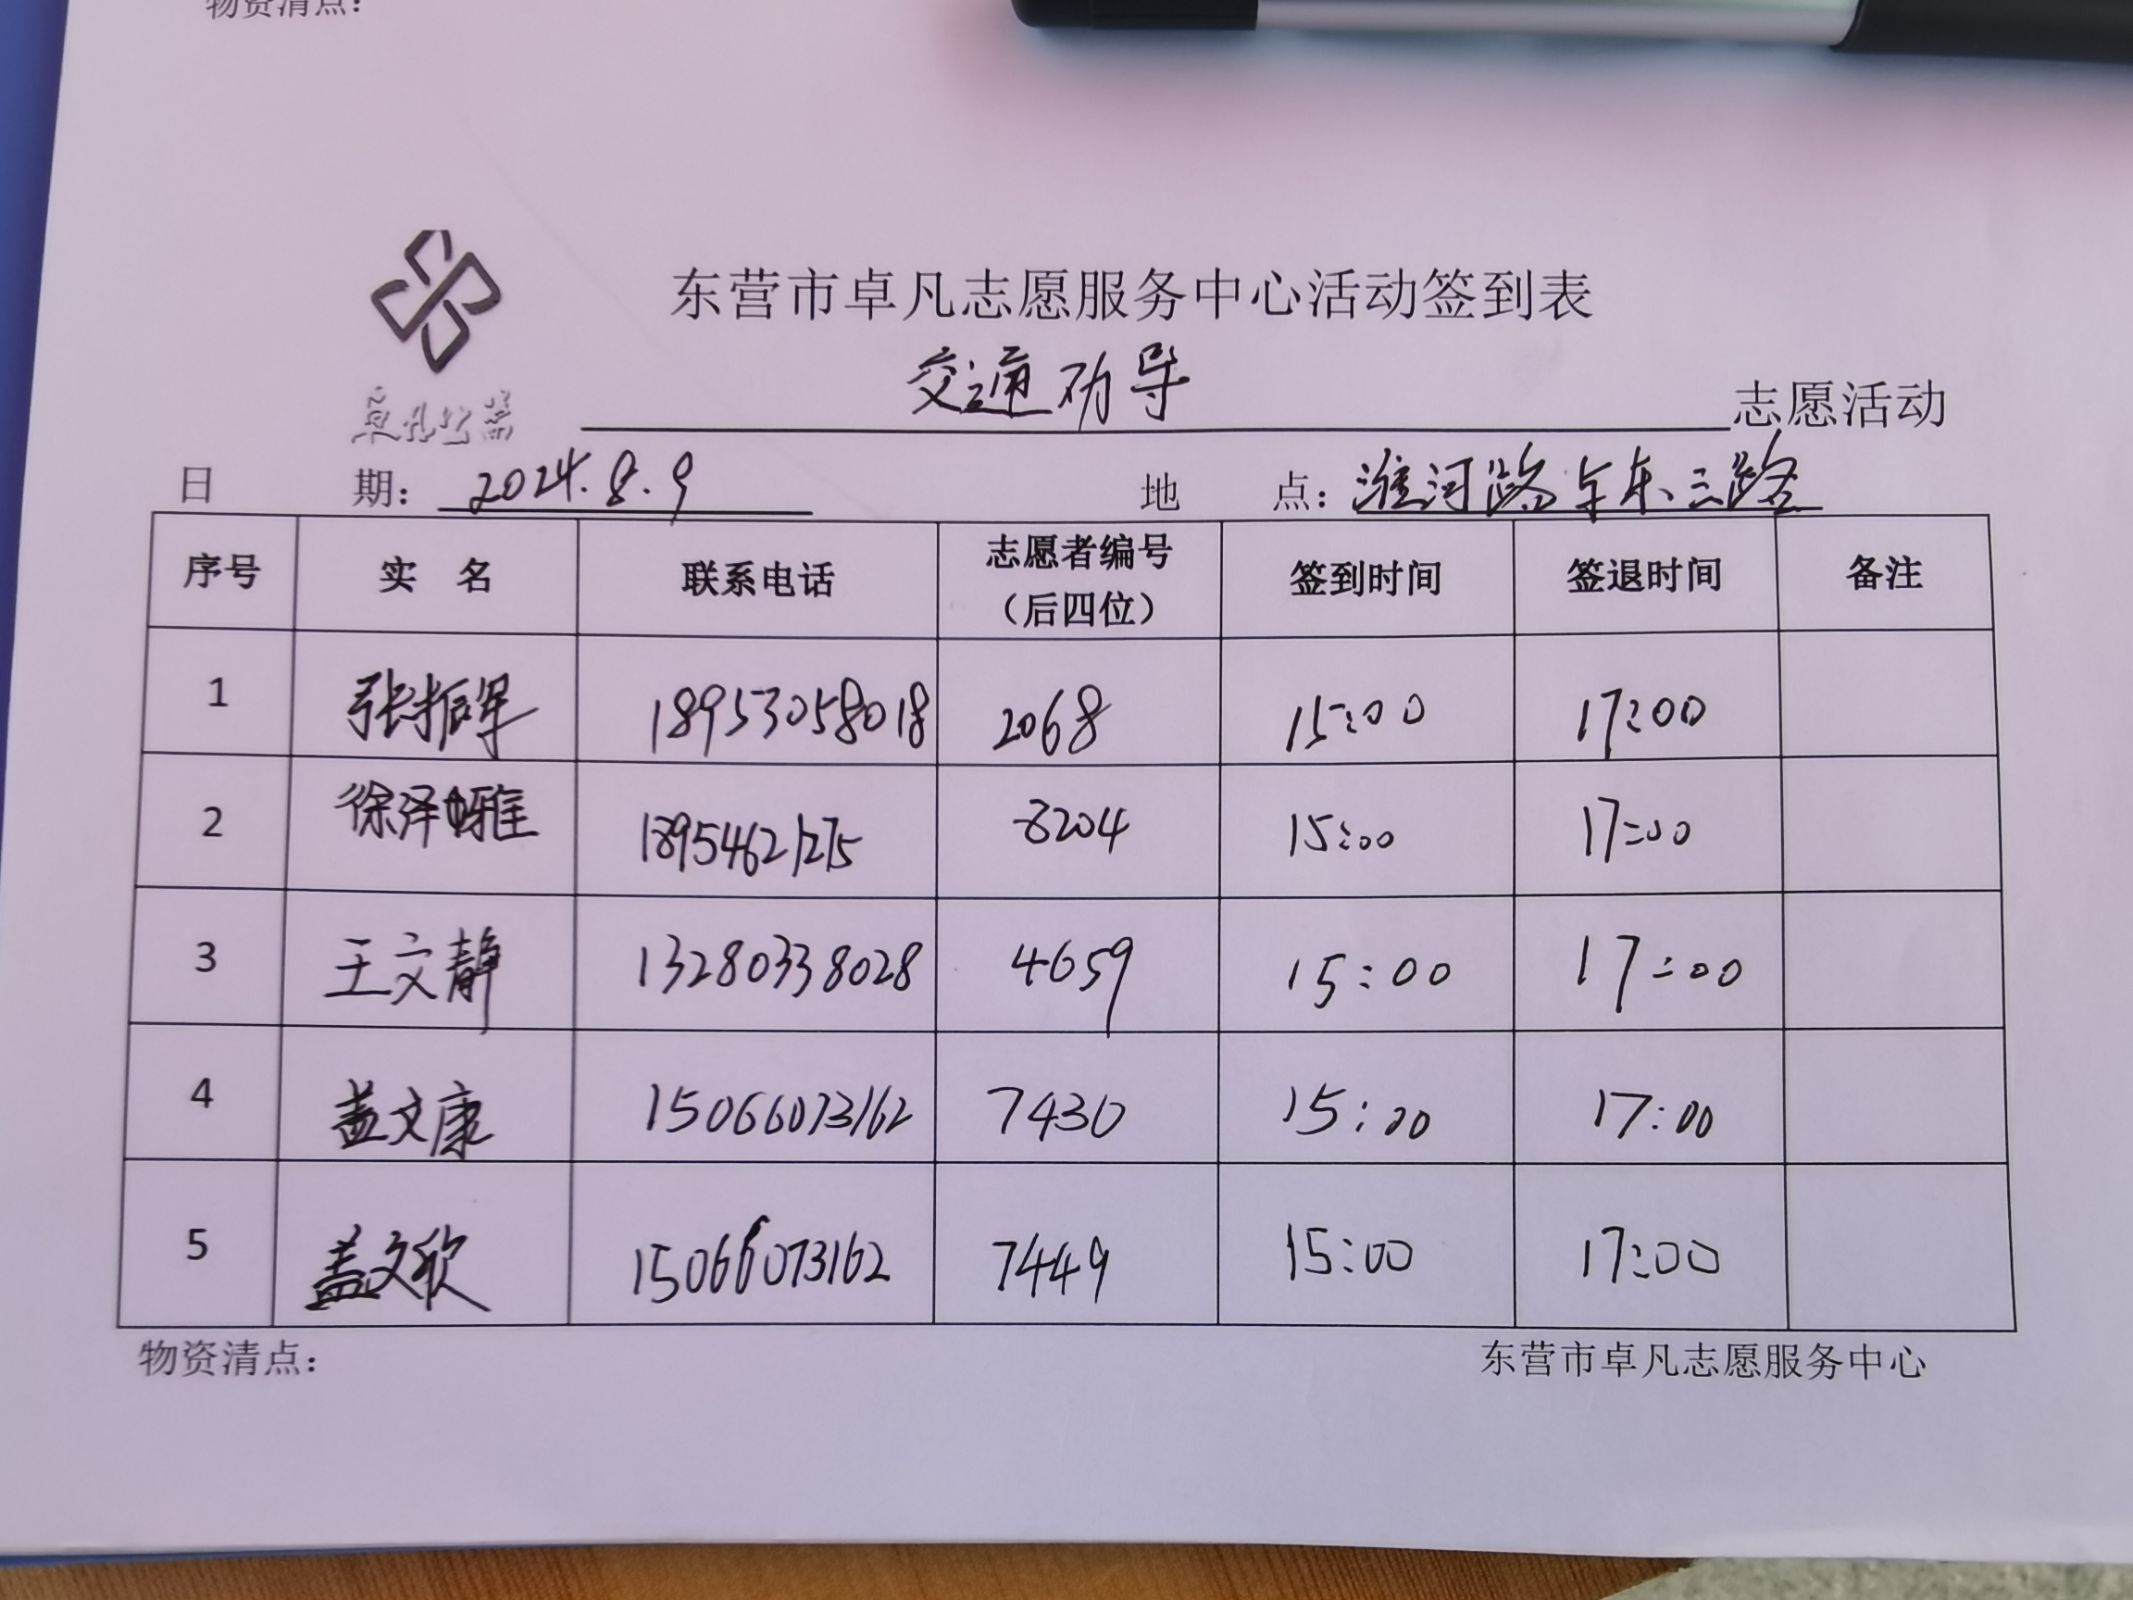 物资清点：
东营市卓凡志愿服务中心活动签到表
卓凡公益
交通劝导 志愿活动
日 期： 2024.8.9 地 点： 淮河路与东三路
序号 实 名 联系电话 志愿者编号（后四位） 签到时间 签退时间 备注
1 张振军 18953058018 2068 15:00 17:00
2 徐泽雅 18954621275 8204 15:00 17:00
3 王文静 13280338028 4659 15:00 17:00
4 盖文康 15066073162 7430 15:00 17:00
5 盖文欣 15066073162 7449 15:00 17:00
物资清点： 东营市卓凡志愿服务中心